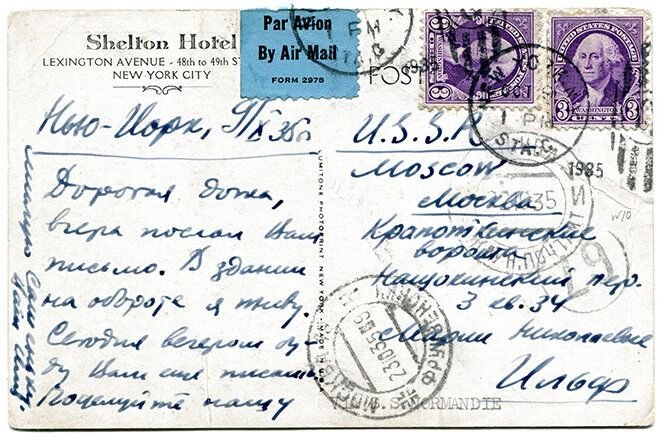 Shelton Hotel
LEXINGTON AVENUE - 48th to 49th ST
NEW YORK CITY
Par Avion
By Air Mail
FORM 2978
POST
UNITED STATES POSTAGE
3 WASHINGTON 3
1 PM
1935
Нью-Йорк, 9/X 35 г.
Дорогая дочка,
вчера послал Вам
письмо. В здании
на обороте я живу.
Сегодня вечером бу-
ду Вам еще писать.
Поцелуйте нашу
U.S.S.R
Moscow
Москва
Кропоткинские
ворота
Нащокинский пер.
3 кв. 34
Марии Николаевне
Ильф
S. S. NORMANDIE
23.10.35
19
W/0